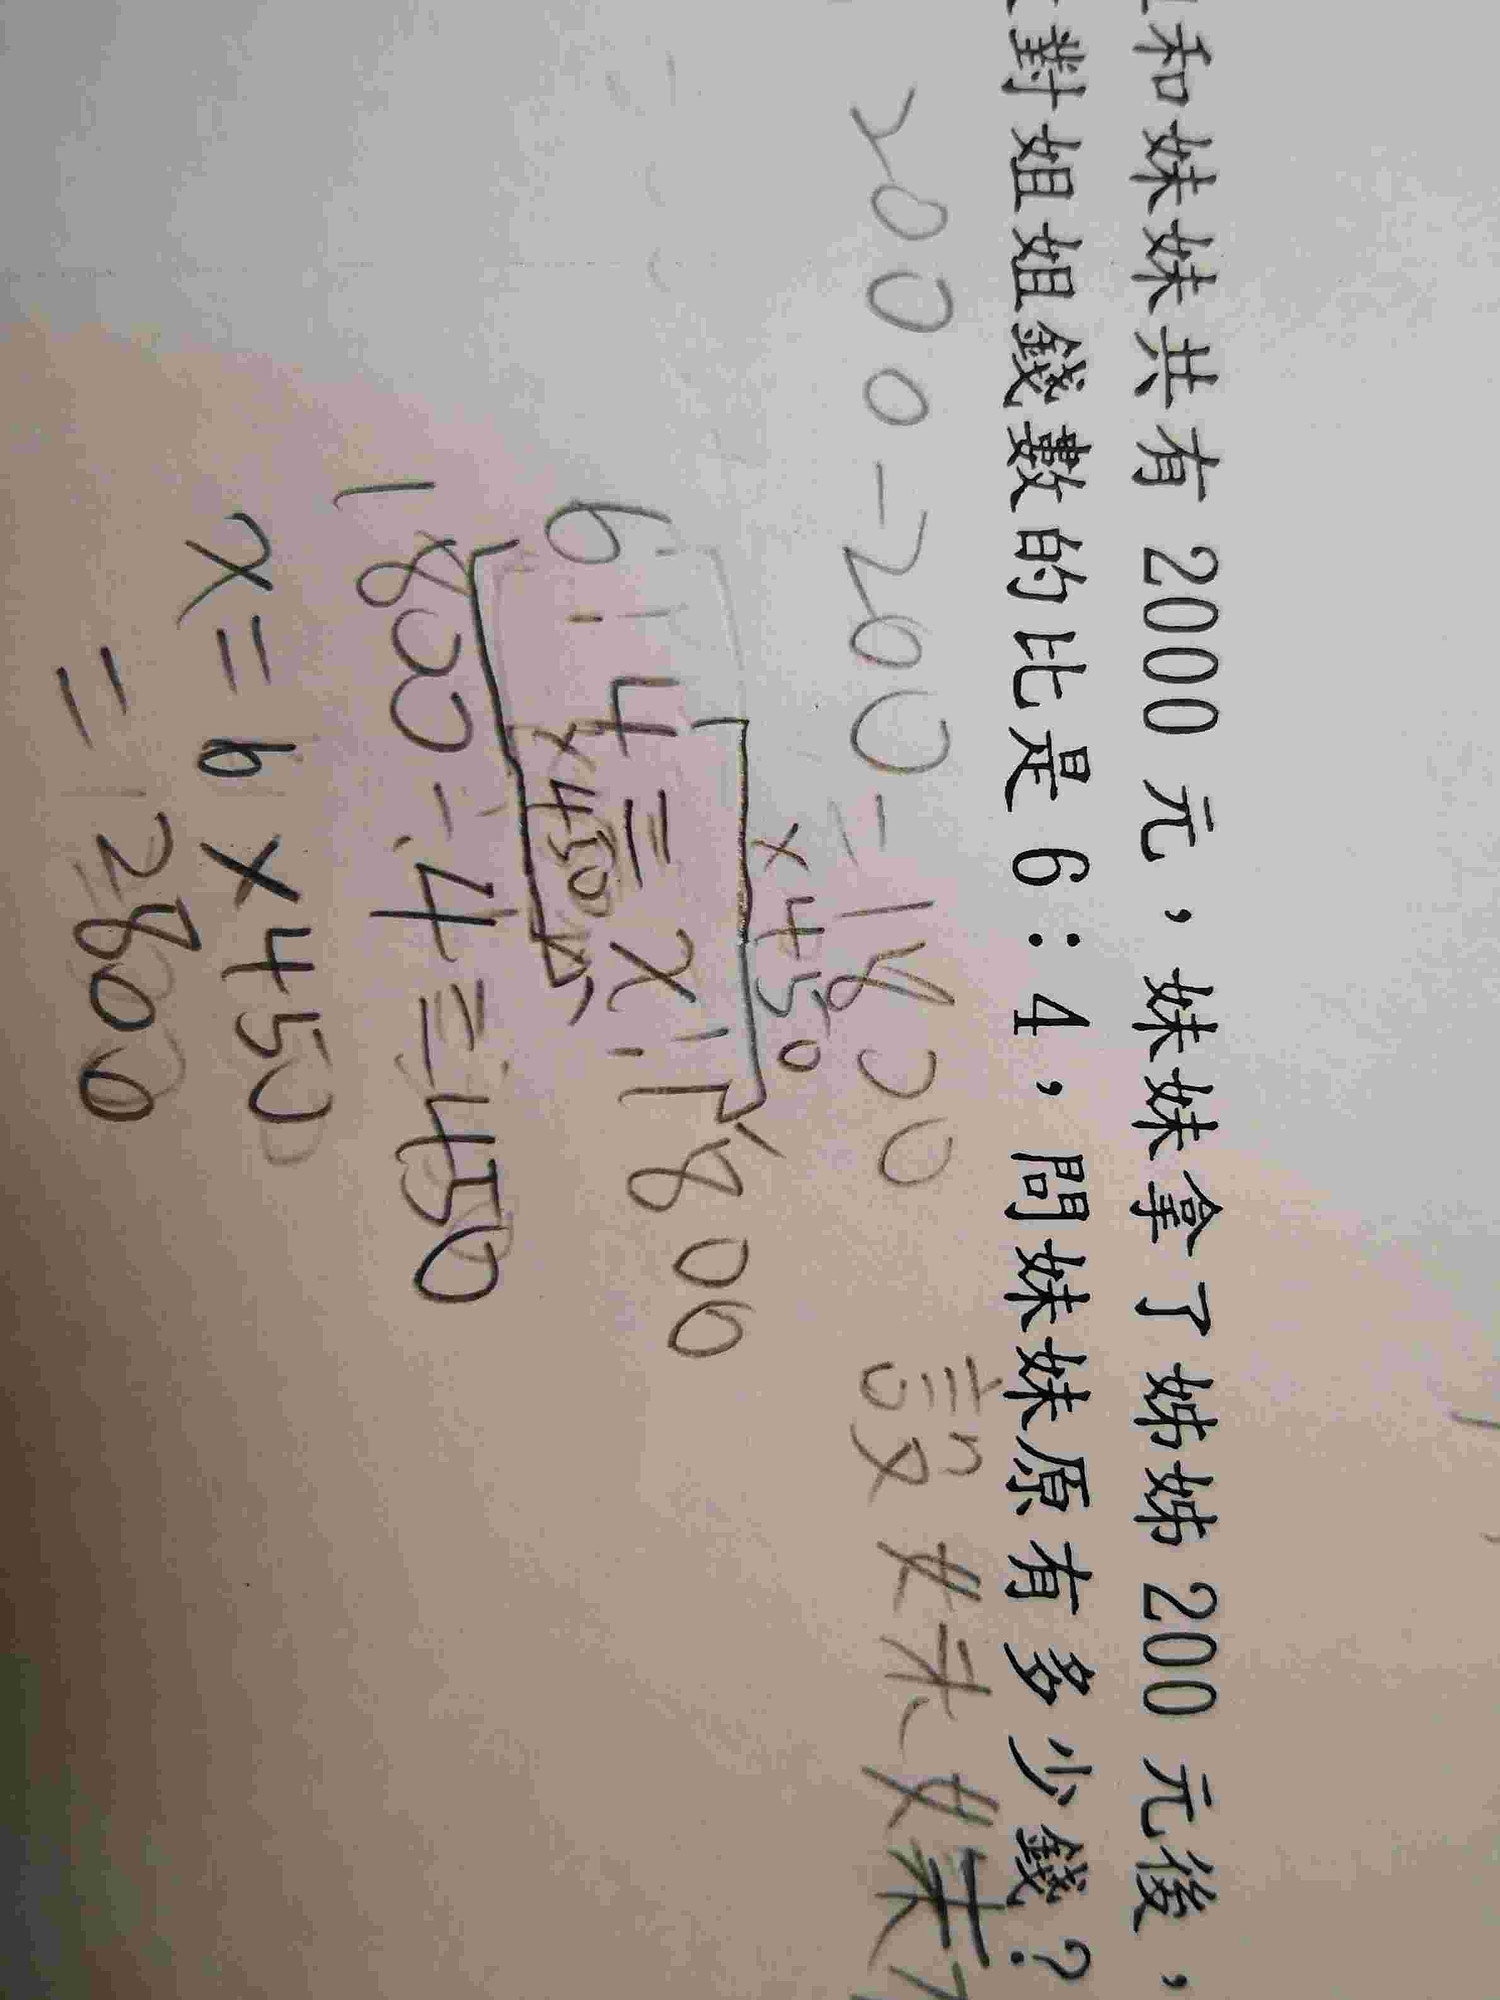 和妹妹共有 2000 元，妹妹拿了姊姊 200 元後，
對姐姐錢數的比是 6：4，問妹妹原有多少錢？
2000-200=1800 設妹妹
×450
6:4=x:1800
×450
1800÷4=450
x=6×450
=2800